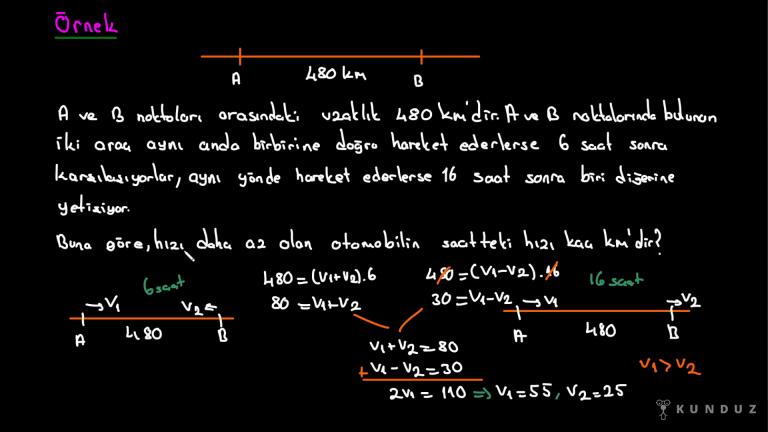 Örnek
A 480 km B
A ve B noktaları arasındaki uzaklık 480 km'dir. A ve B noktalarında bulunan
iki araç aynı anda birbirine doğru hareket ederlerse 6 saat sonra
karşılaşıyorlar, aynı yönde hareket ederlerse 16 saat sonra biri diğerine
yetişiyor.
Buna göre, hızı daha az olan otomobilin saatteki hızı kaç km'dir?
6 saat
→V₁ V₂←
A 480 B
480=(V₁+V₂).6
80=V₁+V₂
480=(V₁-V₂).16
30=V₁-V₂
16 saat
→V₁ →V₂
A 480 B
V₁>V₂
V₁+V₂=80
+ V₁-V₂=30
2V₁=110 ⇒ V₁=55, V₂=25
KUNDUZ